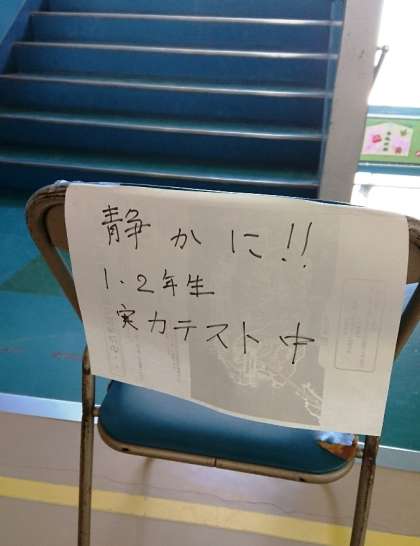 静かに!!
1・2年生
実力テスト中